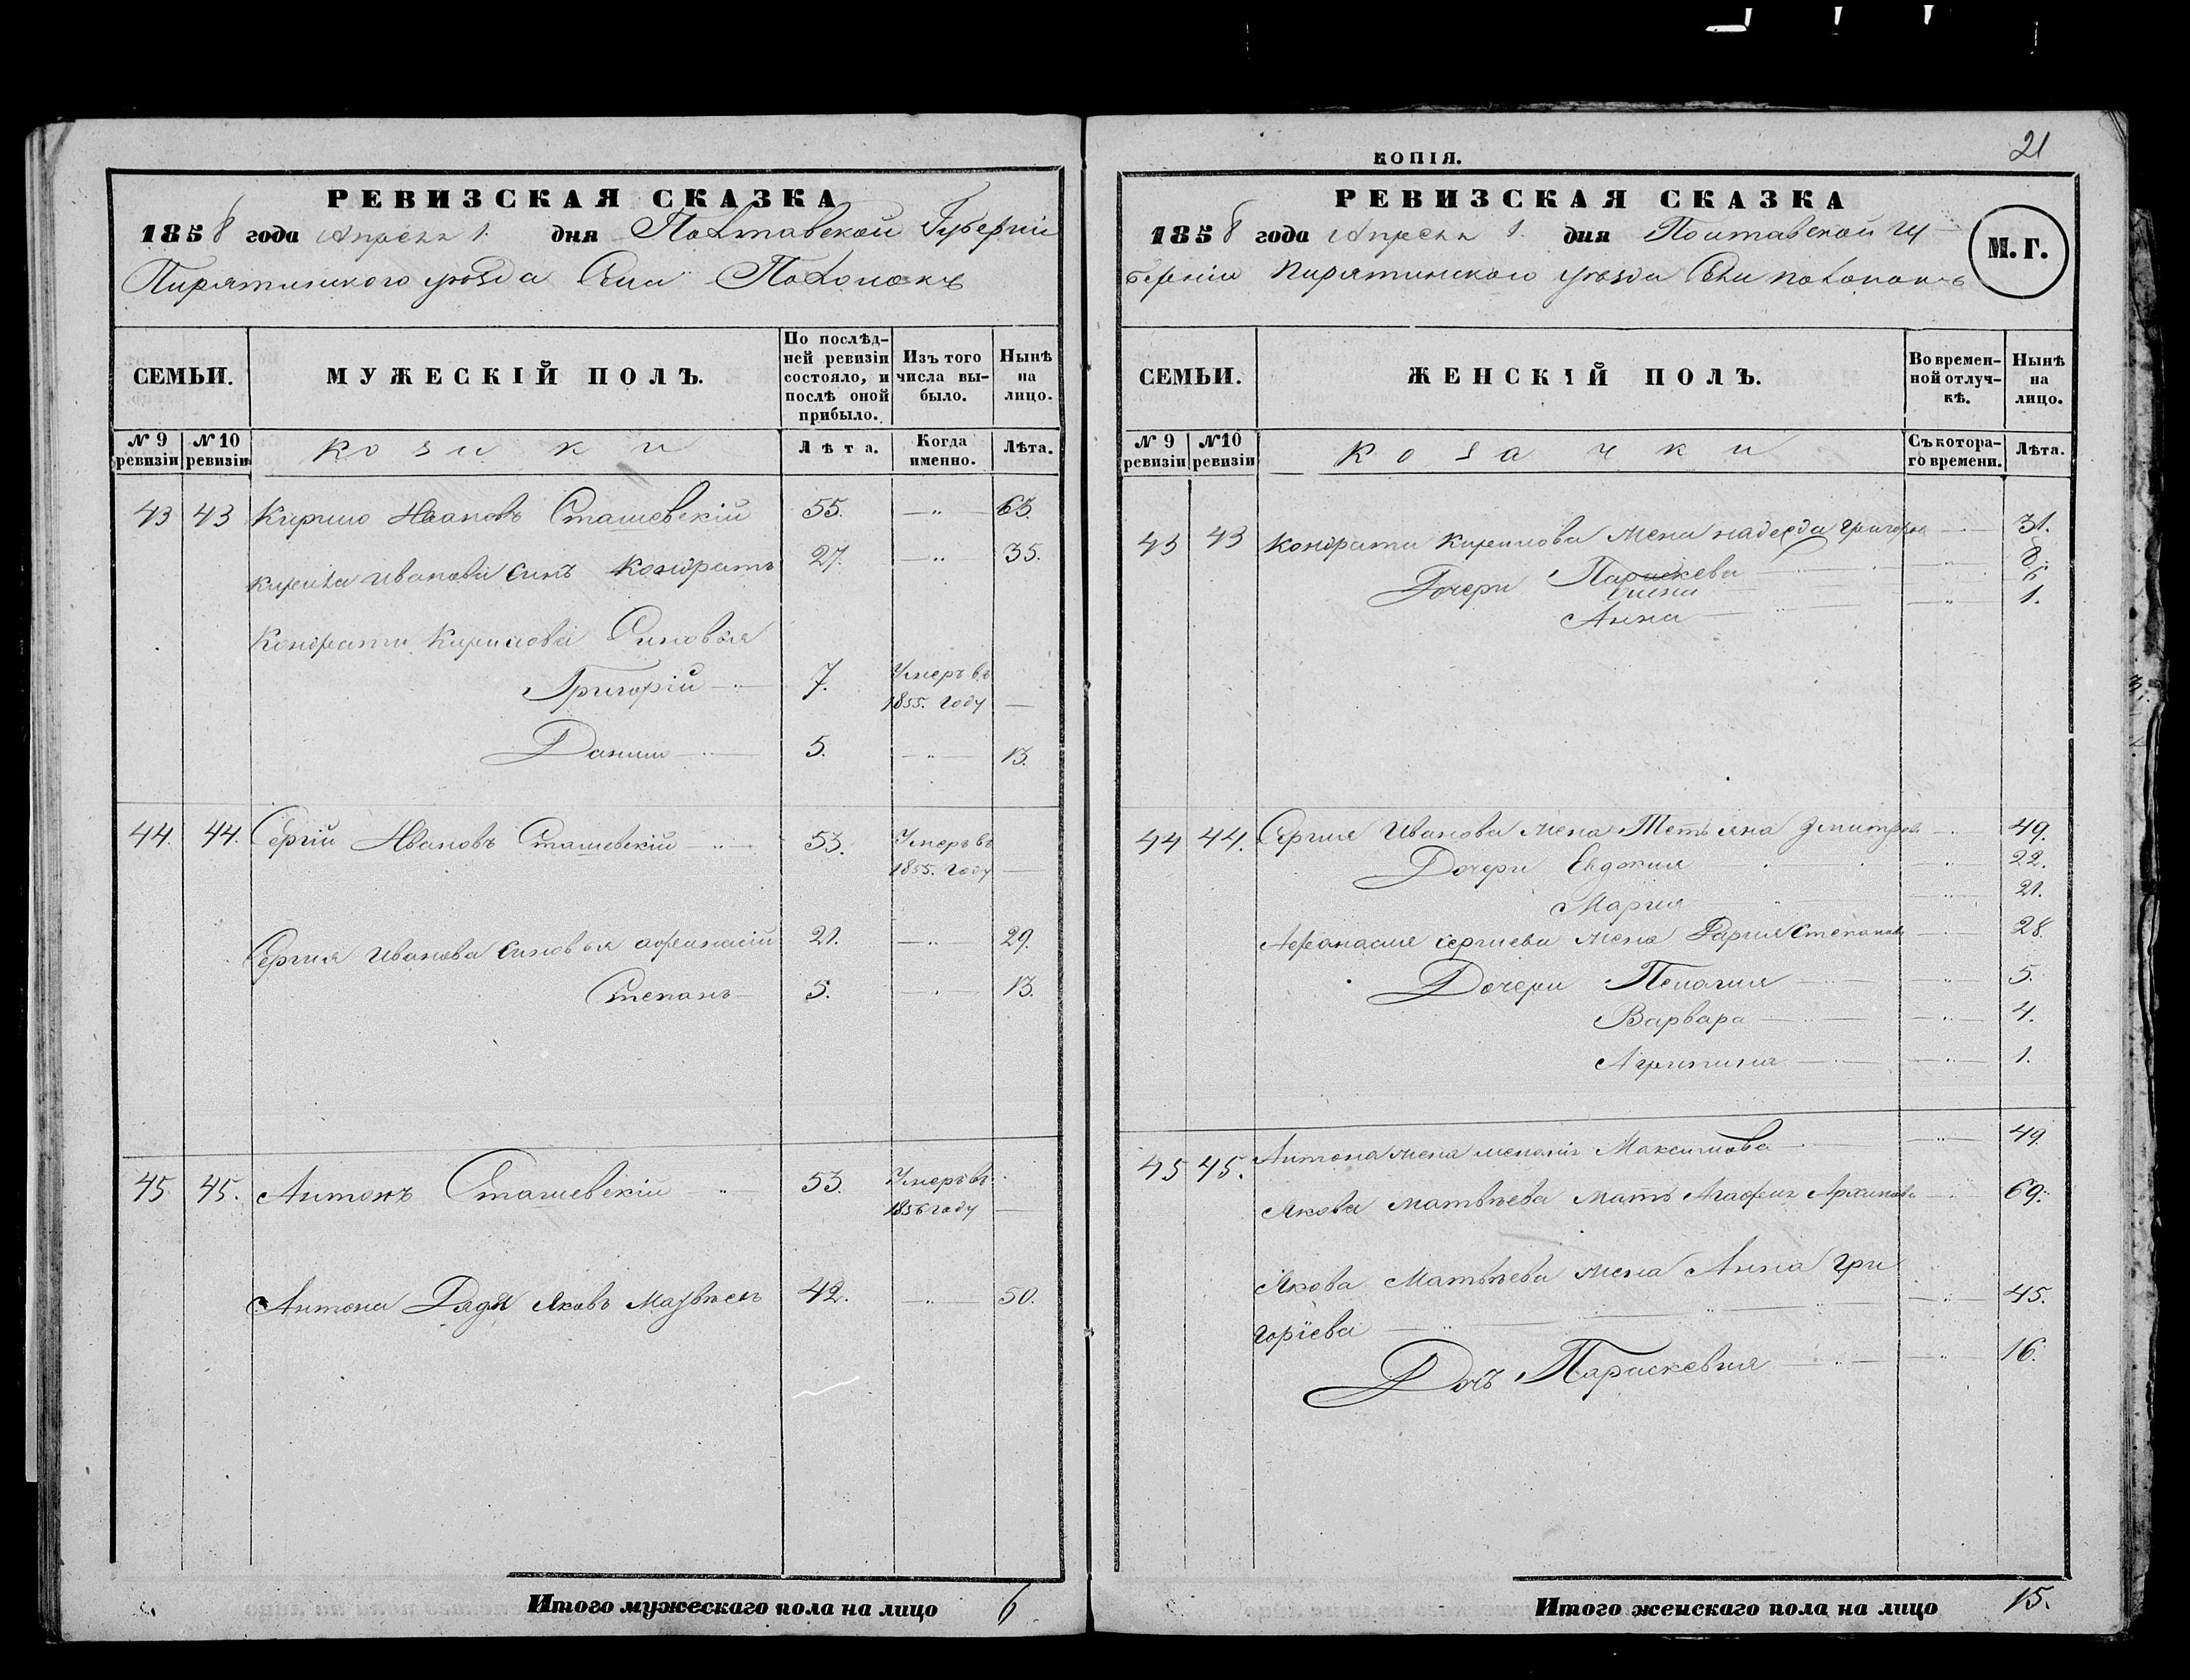 РЕВИЗСКАЯ СКАЗКА
1858 года Апреля 1. дня Полтавской Губерніи
Пирятинского уѣзда Села Положокъ
СЕМЬИ.
МУЖЕСКІЙ ПОЛЪ.
По послѣд-
ней ревизіи
состояло, и
послѣ оной
прибыло.
Изъ того
числа вы-
было.
Нынѣ
на
лицо.
№ 9
ревизіи
№ 10
ревизіи
Козаки
Лѣта.
Когда
именно.
Лѣта.
43 43 Кирило Ивановъ Сташевскій 55. 63.
Кирила Иванова Синъ Кондратъ 27. 35.
Кондрата Кирилова Синовья
Григорій 7. Умеръ въ
1855. году
Данило 5. 13.
44. 44. Сергій Ивановъ Сташевскій 53. Умеръ въ
1855. году
Сергія Иванова Синовья Афанасій 21. 29.
Степанъ 5. 13.
45 45. Антонъ Сташевскій 53. Умеръ въ
1856 году
Антона Дядя Яковъ Матвѣевъ 42. 50.
Итого мужескаго пола на лицо 6
КОПІЯ.
21
РЕВИЗСКАЯ СКАЗКА
1858 года Апреля 1. дня Полтавской Гу
берніи Пирятинского уѣзда Села Положокъ
М. Г.
СЕМЬИ.
ЖЕНСКІЙ ПОЛЪ.
Во времен-
ной отлуч-
кѣ.
Нынѣ
на
лицо.
№ 9
ревизіи
№ 10
ревизіи
Козачки
Съ котора-
го времени.
Лѣта.
43 43 Кондрата Кирилова Жена Надежда Григорьева 31.
Дочери Параскева 8.
6
Анна 1.
44 44. Сергия Иванова Жена Тетьяна Дмитрова 49.
Дочери Евдокия 22.
Мария 21.
Афанасия Сергиева Жена Дария Степанова 28.
Дочери Пелагия 5.
Варвара 4.
Агрипина 1.
45 45. Антона Жена Меланія Максимова 49
Якова Матвѣева Мать Агафия Архипова 69.
Якова Матвѣева Жена Анна Гри
горіева 45.
Дочъ Параскевия 16.
Итого женскаго пола на лицо 15.